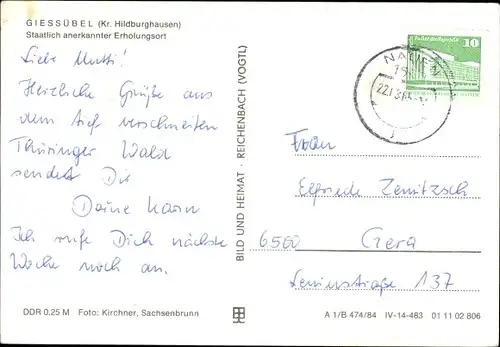 GIESSÜBEL (Kr. Hildburghausen)
Staatlich anerkannter Erholungsort
Liebe Mutti!
Herzliche Grüße aus
dem tief verschneiten
Thüringer Wald
sendet Dir
Deine Karin
Ich rufe Dich nächste
Woche noch an.
DDR 0,25 M Foto: Kirchner, Sachsenbrunn
BILD UND HEIMAT · REICHENBACH (VOGTL)
10
Frau
Elfriede Zemitzsch
6500 Gera
Leninstraße 137
A 1/B 474/84 IV-14-483 01 11 02 806